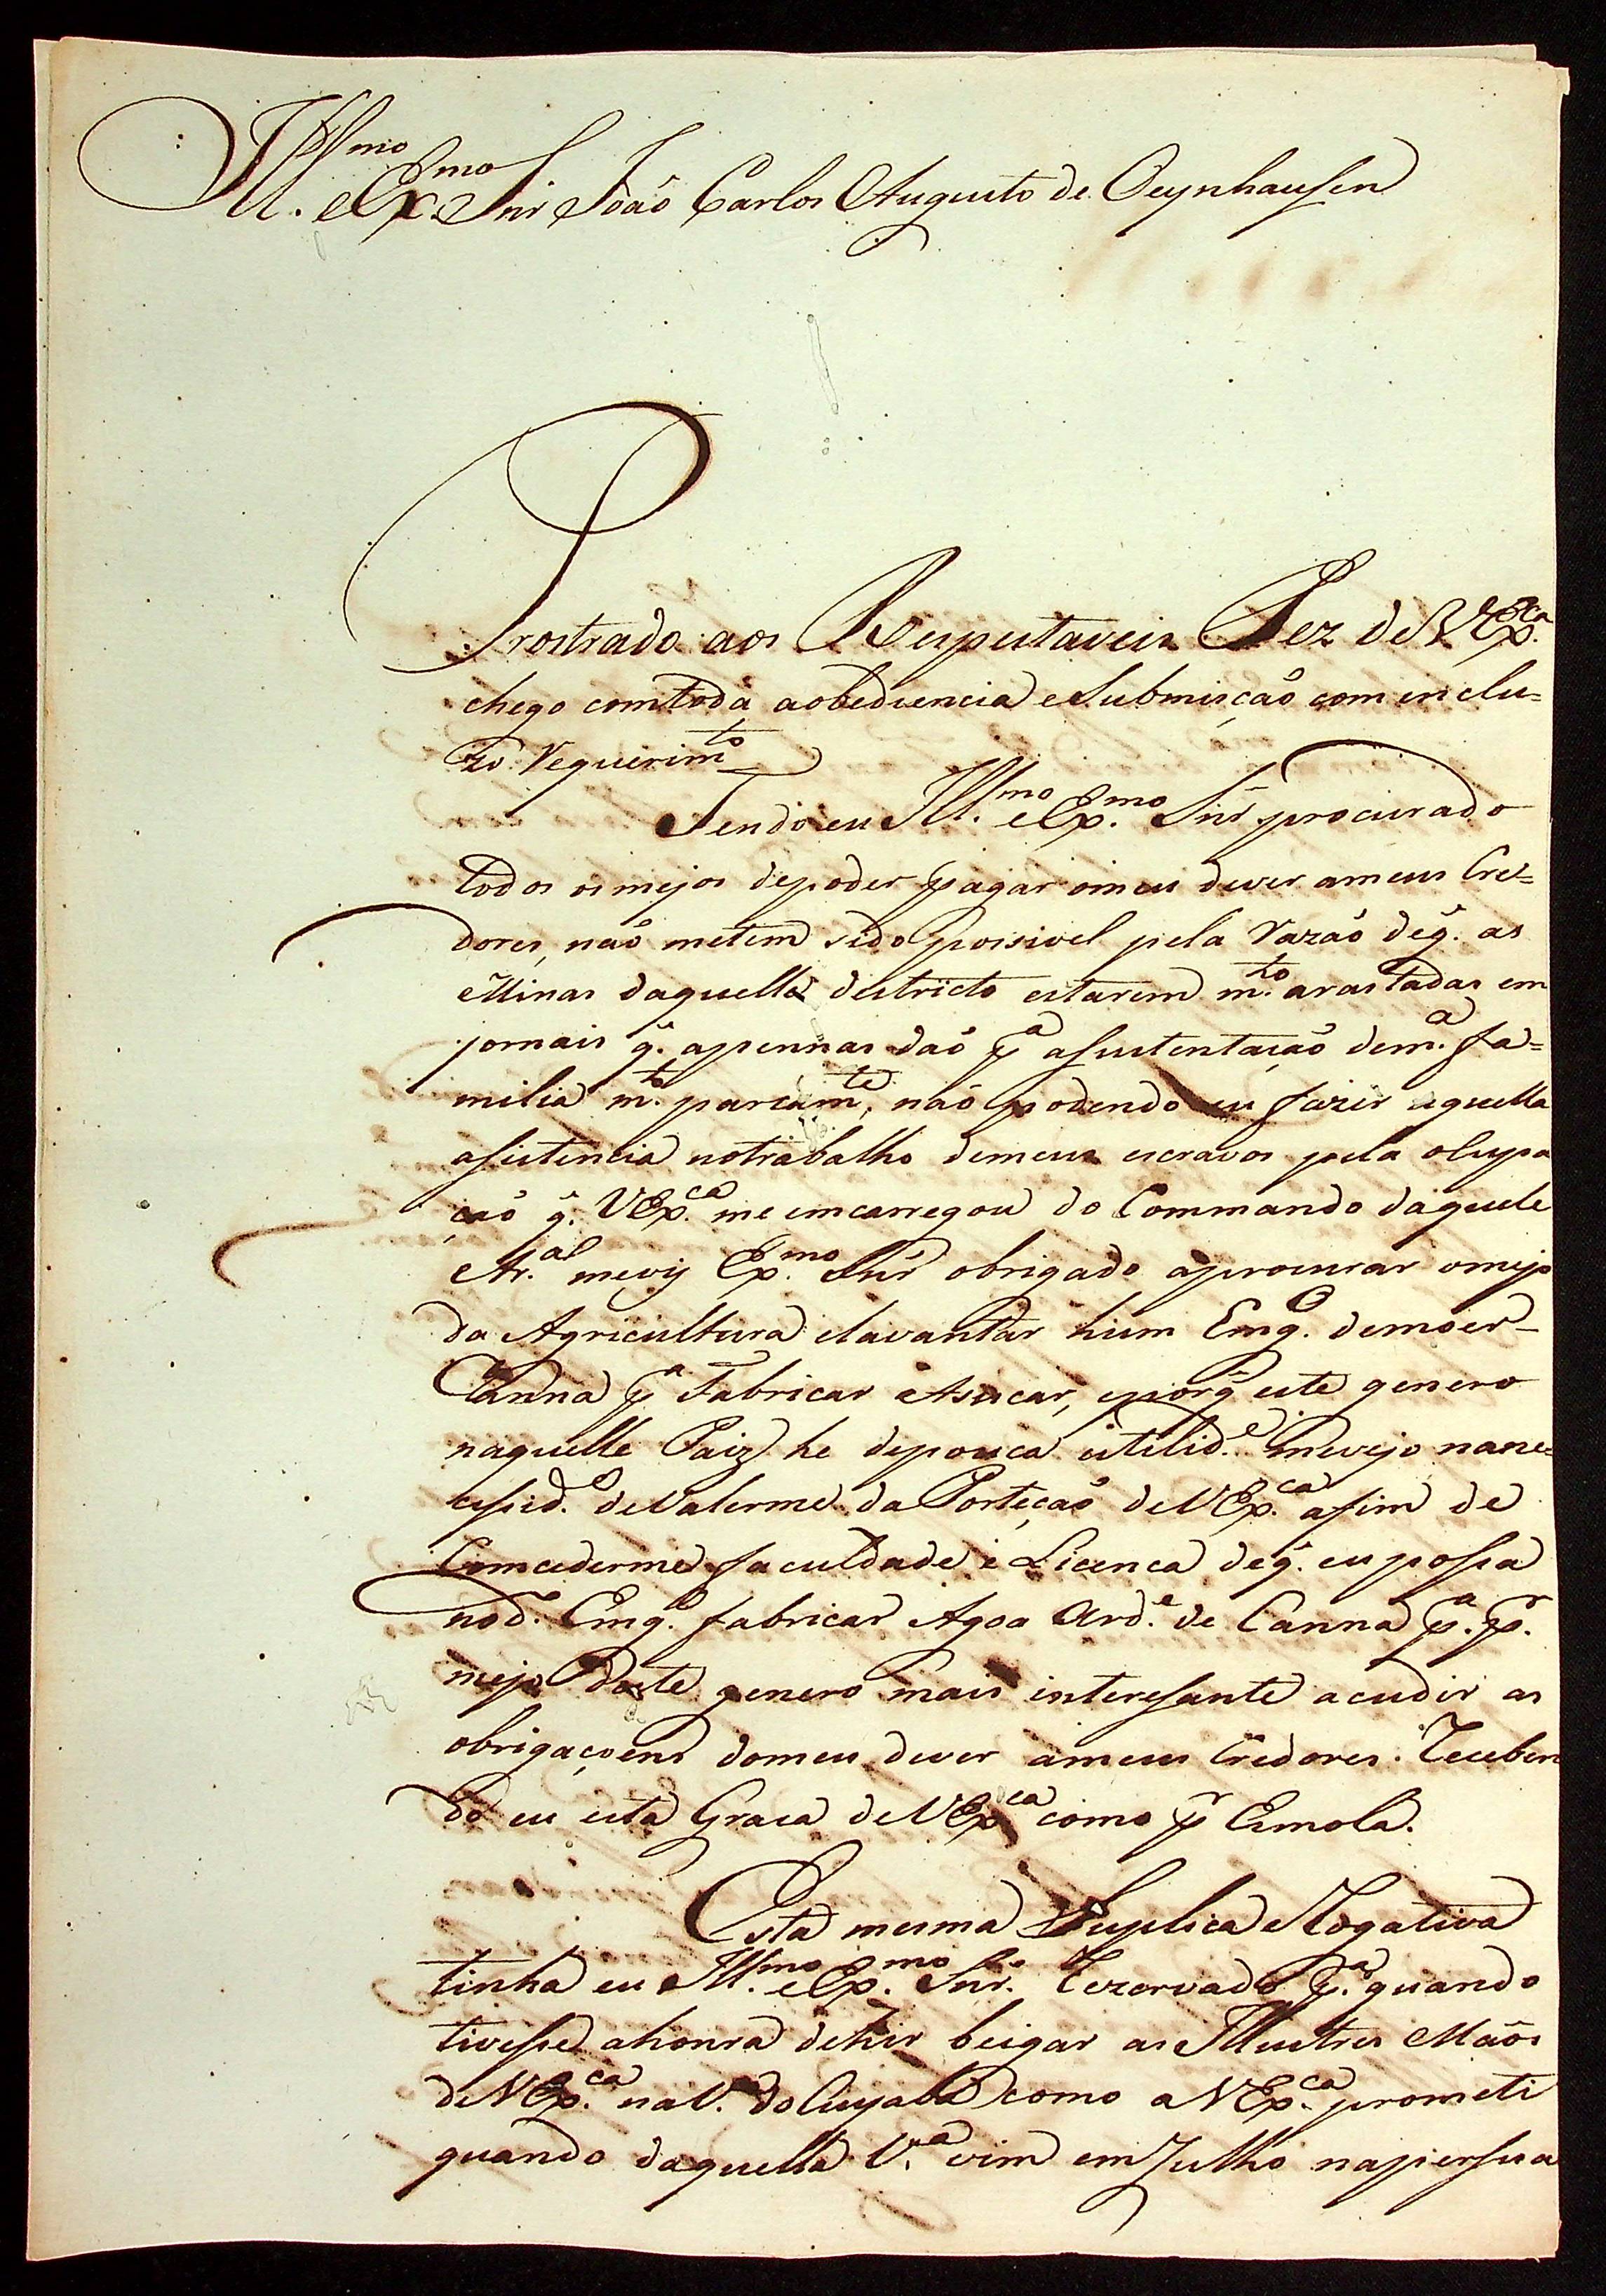 Ill.mo e Ex.mo Snr João Carlos Augusto de Oeynhausen
Prostrado aos Respeitaveis Pez de V Ex.ca
chego com toda a obediencia e Submisção com inclu=
zo Requerim.to
Tendo eu Ill.mo e Ex.mo Snr procurado
todos os mejos de poder pagar o meu dever a meus Cre=
dores, não me tem sido possivel pela Razão de q. as
Minas daquelle destricto estarem m.to arastadas em
jornais q. apennas dão p.a a sustentação de m.a fa=
milia m.to parcam.te, não podendo eu fazer aquella
asistencia no trabalho de meus escravos pela ocupa
ção q. V Ex.ca me emcarregou do Commando daquele
Ar.al me vij Ex.mo Snr obrigado a procurar o mejo
da Agricultura e lavantar hum Emg.o de moer
Canna p.a Fabricar Asucar, e porq̃ este genero
naquelle Paiz he de pouca utilid.e me vejo na ne=
cesid.e de Valerme da Porteção de V Ex.ca afim de
Comcederme faculdade e Licenca de q. eu possa
no d.o Emg.o fabricar Agoa Ard.e de Canna p.a p.r
mejo deste genero mais interesante acudir as
obrigaçoens do meu dever a meus Credores. Receben
do eu esta Graca de V Ex.ca como p.r Esmola.
Esta mesma Suplica e Rogativa
tinha eu Ill.mo e Ex.mo Snr. Rezervado p.a quando
tivesse a honra de hir beigar as Illustres Mãos
de V Ex.ca na V. do Cuyabá como a V Ex.ca prometi
quando daquella V.a vim em Julho na persua